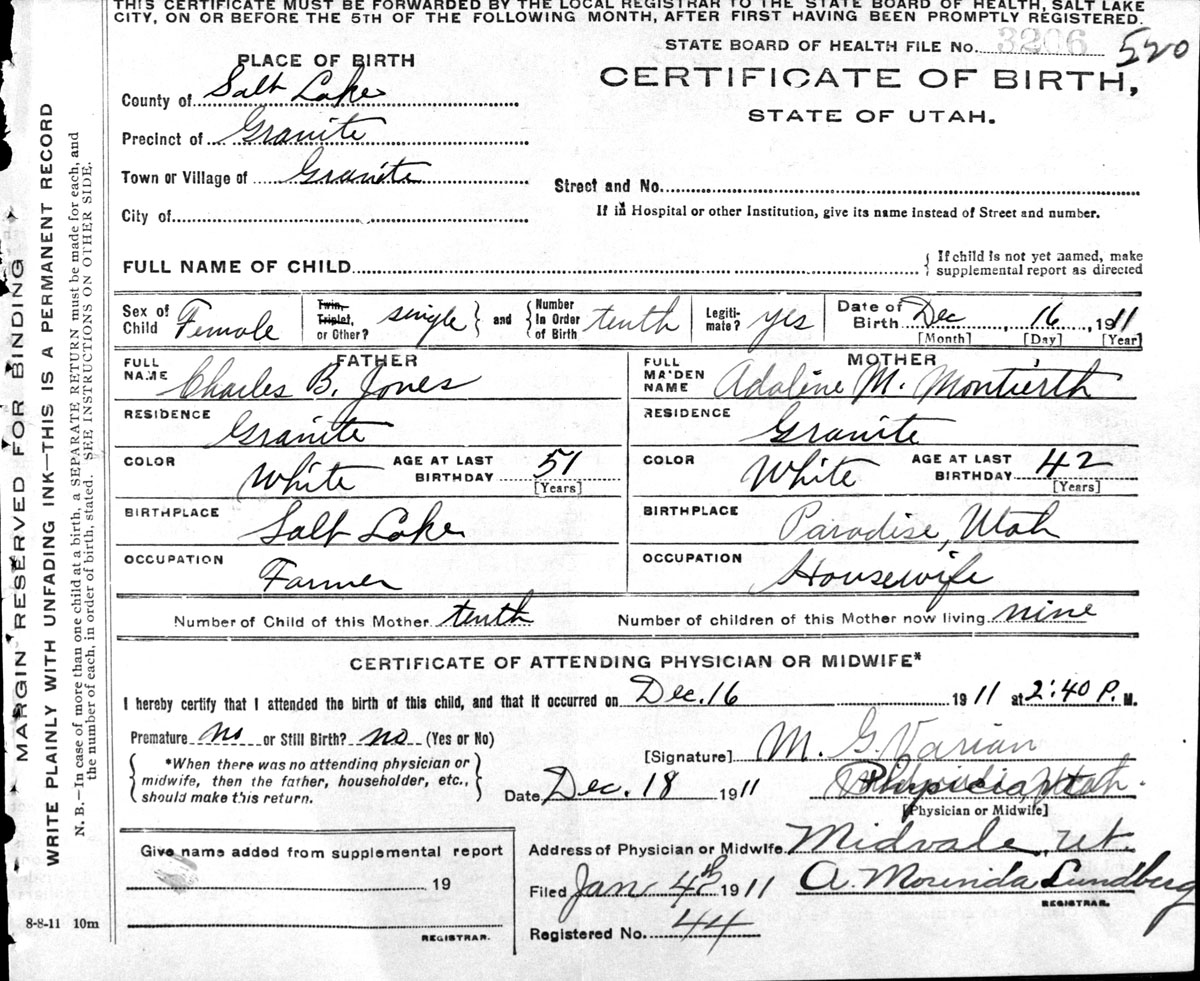 THIS CERTIFICATE MUST BE FORWARDED BY THE LOCAL REGISTRAR TO THE STATE BOARD OF HEALTH, SALT LAKE
CITY, ON OR BEFORE THE 5TH OF THE FOLLOWING MONTH, AFTER FIRST HAVING BEEN PROMPTLY REGISTERED.
STATE BOARD OF HEALTH FILE No. 3206 520
PLACE OF BIRTH
CERTIFICATE OF BIRTH,
STATE OF UTAH.
County of Salt Lake
Precinct of Granite
Town or Village of Granite
Street and No.
City of
If in Hospital or other Institution, give its name instead of Street and number.
FULL NAME OF CHILD
{ If child is not yet named, make
supplemental report as directed
Sex of Child Female
Twin, Triplet, or Other? single } and { Number In Order of Birth tenth
Legitimate? yes
Date of Birth Dec 16, 1911
[Month] [Day] [Year]
FATHER
FULL NAME Charles B. Jones
MOTHER
FULL MAIDEN NAME Adaline M. Montierth
RESIDENCE Granite
RESIDENCE Granite
COLOR White AGE AT LAST BIRTHDAY 51 [Years]
COLOR White AGE AT LAST BIRTHDAY 42 [Years]
BIRTHPLACE Salt Lake
BIRTHPLACE Paradise, Utah
OCCUPATION Farmer
OCCUPATION Housewife
Number of Child of this Mother tenth Number of children of this Mother now living nine
CERTIFICATE OF ATTENDING PHYSICIAN OR MIDWIFE*
I hereby certify that I attended the birth of this child, and that it occurred on Dec. 16 1911 at 2:40 P. M.
Premature no or Still Birth? no (Yes or No)
[Signature] M. G. Varian
{ *When there was no attending physician or
midwife, then the father, householder, etc.,
should make this return. }
Date Dec. 18 1911
[Physician or Midwife]
Give name added from supplemental report
19
REGISTRAR.
Address of Physician or Midwife Midvale, Ut.
Filed Jan 4th 1911 A. Morinda Lundberg
REGISTRAR.
Registered No. 44
8-8-11 10m
MARGIN RESERVED FOR BINDING
WRITE PLAINLY WITH UNFADING INK—THIS IS A PERMANENT RECORD
N. B.—In case of more than one child at a birth, a SEPARATE RETURN must be made for each, and
the number of each, in order of birth, stated. SEE INSTRUCTIONS ON OTHER SIDE.